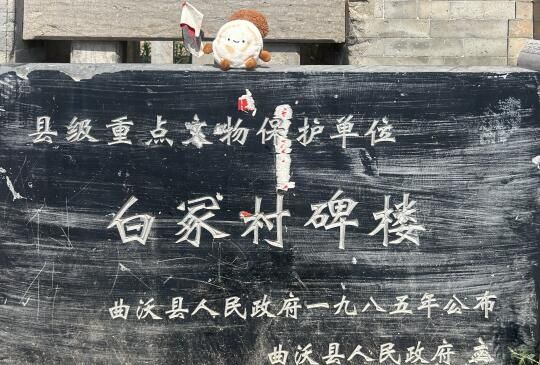 县级重点文物保护单位
白冢村碑楼
曲沃县人民政府一九八五年公布
曲沃县人民政府立